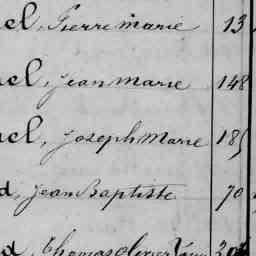 el, Pierre marie 13
el, jean marie 148
el, joseph Marie 185
d, Jean Baptiste 70
d, thomas olivier